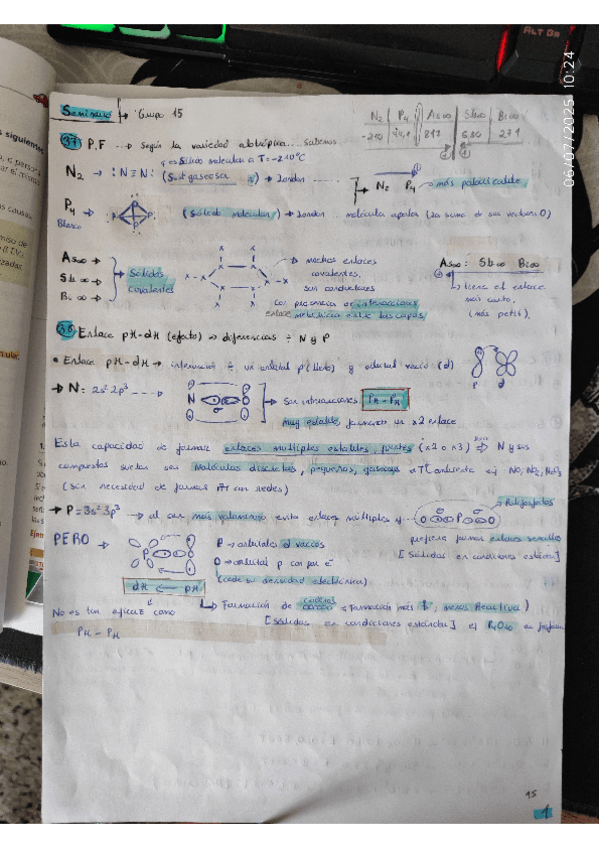 Seminario → Grupo 15
N₂ | P₄ | As∞ | Sb∞ | Bi∞
-210 | 44,1 | 817 | 630 | 271
37 P.F ...→ Según la variedad alotrópica... sabemos
es sólido molecular a T= -210°C
N₂ → :N≡N: (Sust gaseosa) → London ...... → N₂ P₄ → más polarizable
P₄ → (Sólido molecular) → London ... molécula apolar (la suma de sus vectores 0)
Blanco
As∞ →
Sb∞ →
Bi∞ →
Sólidos covalentes
muchos enlaces
covalentes,
son conductores
con presencia de interacciones
enlace metálico entre las capas
As∞ : Sb∞ Bi∞
tiene el enlace
más corto,
(más petit),
38 Enlace pπ-dπ (efecto) ⇒ diferencias ÷ N y P
• Enlace pπ-dπ → interacción ÷ un orbital p (lleno) y orbital vacío (d)
p d
→ N = 2s² 2p³ ....→ N → Son interacciones Pπ - Pπ
muy estable, forman un x2 enlace
Esta capacidad de formar enlaces múltiples estables, fuertes (x2 o x3) ⇒ N y sus
compuestos suelen ser Moléculas discretas, pequeñas, gaseosas a Tª ambiente ej NO, NO₂, N₂O₃
(sin necesidad de formar redes)
→ P = 3s² 3p³ → al ser más voluminoso evita enlaces múltiples y
Polifosfatos
O P O
prefiere formar enlaces sencillos
[Sólidas en condiciones estándar]
PERO →
P → orbitales d vacíos
O → orbital p con par e⁻
(cede su densidad electrónica)
dπ ← pπ
No es tan eficaz como
Pπ - Pπ
→ Formación de cadenas (Formación más menos Reactiva)
[Sólidas en condiciones estándar] ej P₄O₁₀
15
1
06/07/2025 10:24
ALT GR
siguientes